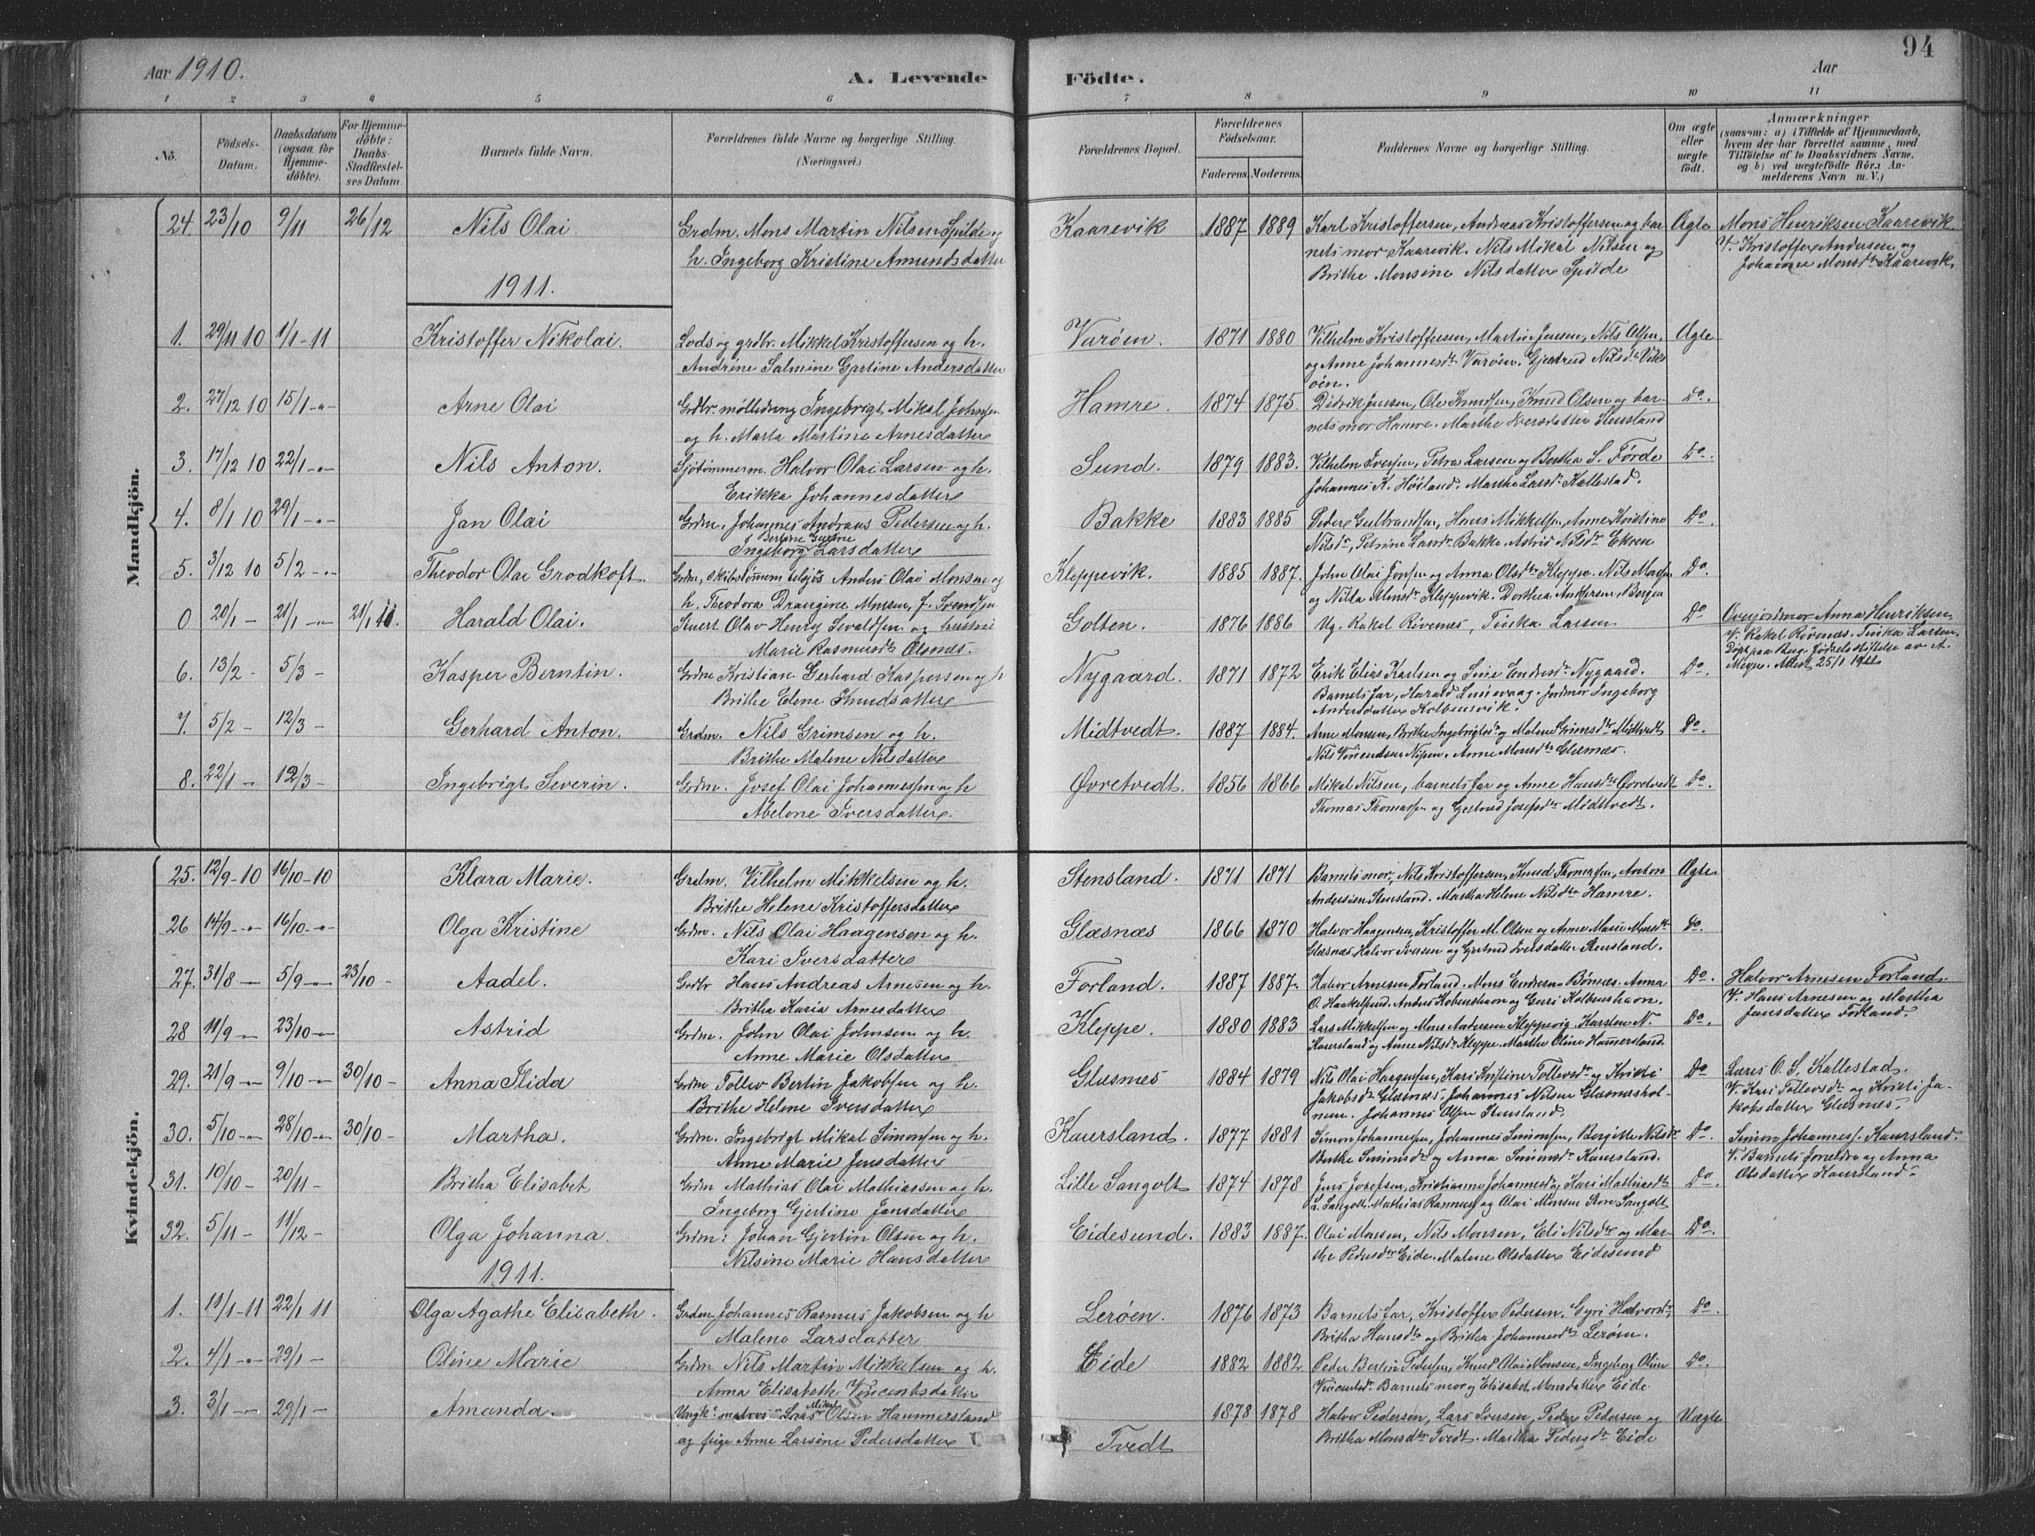 94
Aar 1910. A. Levende Födte. Aar
1 2 3 4 5 6 7 8 9 10 11
No. Födsels-Datum. Daabsdatum (ogsaa for Hjemmedöbte). For Hjemmedöbte: Daabs-Stadfæstelses Datum. Barnets fulde Navn. Forældrenes fulde Navne og borgerlige Stilling. (Næringsvei.) Forældrenes Bopæl. Forældrenes Födselsaar. Faderens. Moderens. Faddernes Navne og borgerlige Stilling. Om ægte eller uægte födt. Anmærkninger (saasom: a) i Tilfælde af Hjemmedaab, hvem der har forrettet samme, med Tilföielse af to Daabsvidners Navne, og b) ved uægtefödte Börn Anmelderens Navn m. V.)
Mandkjön.
24. 23/10 9/11 26/12 Nils Olai. Grdm. Mons Martin Nilsen Spilde og Kaarevik 1887 1889 Karl Kristoffersen, Andreas Kristoffersen og bar- Ægte Mons Henriksen Kaarevik.
h. Ingeborg Kristine Amundsdatter nets mor Kaarevik. Nils Mikal Nilsen og V. Kristoffer Andersen og
1911. Brithe Monsine Nilsdatter Spilde Johanne Monsdr Kaarevik.
1. 29/11 10 1/1-11 Kristoffer Nikolai. Lods og grdbr. Mikkel Kristoffersen og h. Varöen. 1871 1880 Vilhelm Kristoffersen, Martin Jensen, Nils Olsen, Ægte
Andrine Salmine Gjertine Andersdatter og Anne Johannesdr Varöen. Gjertrud Nilsdr Viks
öen.
2. 27/12 10 15/1 -"- Arne Olai Grdbr. Ingebrigt Mikal Johnsen Hamre. 1874 1875. Didrik Jensen, Ole Knudsen, Knud Olsen og bar- Do.
og h. Marta Martine Arnesdatter nets mor Hamre. Marthe Iversdatter Stensland
3. 17/12 10 22/1 -"- Nils Anton. Halvor Olai Larsen og h. Sund. 1879 1883. Vilhelm Iversen, Petra Larsen og Berthe S. Förde Do.
Erikka Johannesdatter Johannes K. Höiland. Marthe Larsdr Kallestad.
4. 8/1 10 29/1 -"- Jan Olai Grdm. Johannes Andreas Pedersen og h. Bakke 1883 1885 Peder Gulbrandsen, Hans Mikkelsen, Anne Kristine Do
Ingeborg Larsdatter Nilsdr, Petrine Larsdr Bakke. Astrid Nilsdr Ekren
5. 3/12 10 5/2 -"- Theodor Olai Grodkoft. Anders Olai Monsen og Kleppevik. 1885 1887. John Olai Jonsen og Anna Olsdr Kleppe. Nils Monsen Do
h. Theodora Drangine Monsen, f. Svendsen og Nilla Monsdr Kleppevik. Dorthea Andersen, Bergen
0 20/1 - 21/1 -"- 21/1 11. Harald Olai. Olav Henry Sevaldsen og hustru Golten. 1876 1886 Ug. Rakel Rivenes, Tinka Larsen Do Overjordmor Anna Henriksen
Marie Rasmusdr Olsnes. V. Rakel Rivenes, Tinka Larsen.
6. 13/2 - 5/3 - Kasper Berntin. Grdm Kristian Gerhard Kaspersen og h Nygaard. 1871 1872 Erik Elias Karlsen og Sine Endresdr Nygaard. Do. Döpt paa Berg. Födselsstiftelse
Brithe Elene Knudsdatter Barnets far, Harald jordmor Ingeborg
Andersdatter Kolbensvik.
7. 5/2 - 12/3 - Gerhard Anton. Grdm. Nils Grimsen og h. Midtvedt. 1887 1884. Arne Monsen, Brithe Ingebrigtsdr og Malene Grimsdr Midtvedt Do.
Brithe Malene Nilsdatter Nils Vincentsen Nipen. Anne Monsdr Glesnes.
8. 22/1 - 12/3 - Ingebrigt Severin. Grdm. Josef Olai Johannesen og h Øvretvedt. 1856 1866 Mikal Nilsen, barnets far og Anne Hansdr Øvretvedt Do.
Abelone Iversdatter Thomas Thomassen og Gjertrud Josefsdr Midttvedt.
Kvindekjön.
25. 12/9-10 16/10-10 Klara Marie. Grdm. Vilhelm Mikkelsen og h. Stensland. 1871 1871 Barnets mor, Nils Kristoffersen, Knud Thomassen, Anton Ægte
Brithe Helene Kristoffersdatter Andersen Stensland. Martha Helene Nilsdr Hamre.
26 14/9 -"- 16/10 -"- Olga Kristine Grdm. Nils Olai Haagensen og h. Glæsnæs 1866 1870 Halvor Haagensen, Kristoffer M. Olsen og Anne Marie Monsdr Do.
Kari Iversdatter Glæsnæs Halvor Iversen og Gjertrud Iversdatter Stensland.
27. 31/8 - 5/9 -"- 23/10 - Aadel. Grdbr Hans Andreas Arnesen og h. Forland. 1887 1887. Halvor Arnesen Forland. Mons Endresen Börnæs. Anna Do. Halvor Arnesen Forland.
Britha Karia Arnesdatter O. Haakelsund. Anders Kobenshavn og Guri Kolbenshavn. V. Hans Arnesen og Martha
28 11/9 - 23/10 -"- Astrid Grdm. John Olai Johnsen og h. Kleppe. 1880 1883 Lars Mikkelsen og Mons Andersen Kleppevig. Karsten N. Do. Jensdatter Forland.
Anne Marie Olsdatter Kauersland og Anne Nilsdr Kleppe. Marthe Oline Hammersland.
29. 21/9 -"- 9/10 -"- 30/10 - Anna Ilida Grdm Tollev Bertin Jakobsen og h. Glesnes 1884 1879 Nils Olai Haagensen, Kari Kristine Tollevsdr og Kristi Do Lars O. S. Kallestad.
Brithe Helene Iversdatter Jakobsdr Glesnes. Johannes Nilsen Glæsneshol- V. Kari Tollevsdr og Kristi Ja-
men. Johannes Olsen Stensland. kobsdatter Glesnes.
30. 5/10 -"- 28/10 -"- 30/10 - Martha. Grdm. Ingebrigt Mikal Simonsen og h. Kauersland. 1877 1881 Simon Johannesen, Johannes Simonsen, Bergitte Nilsdr Do. Simon Johannes. Kauersland.
Anne Marie Jensdatter Berthe Simonsdr og Anna Simonsdr Kauersland. V. Barnets Forældre og Anna
31. 10/10 - 20/11 - Britha Elisabet Grdm Mathias Olai Mathiassen og h. Lille Sangolt 1874 1878 Jens Josefsen, Kristianne Johannesdr og Kari Mathiasdr Do. Olsdatter Kauersland.
Ingeborg Gjertine Jansdatter L. Sangolt. Mathias Rasmus og Olai Monsen Store Sangolt
32. 5/11 - 11/12 - Olga Johanna. Grdm: Johan Gjertin Olsen og h. Eidesund. 1883 1887. Olai Monsen, Nils Monsen, Eli Nilsdr og Mar- Do.
Nilsine Marie Hansdatter the Pedersdr Eide. Malene Olsdatter Eidesund
1911.
1. 11/1-11 22/1 11 Olga Agathe Elisabeth. Grdm Johannes Rasmus Jakobsen og h Leröen. 1876 1873 Barnets far, Kristoffer Pedersen, Gyri Halvorsdr Do.
Malene Larsdatter Britha Hansdr og Britha Johannesdr Leröen.
2. 4/1 -"- 29/1 - Oline Marie Grdm Nils Martin Mikkelsen og h. Eide 1882 1882 Peder Bertin Pedersen, Knud Olai Monsen, Ingeborg Oline Do.
Anna Elisabeth Vincentsdatter Vincentsdr Barnets mor og Elisabet Monsdatter Eide
3. 3/1 - 29/1 - Amanda. Ungk. matros Lars Mikal Olsen Hammersland 1878 1878 Halvor Pedersen, Lars Iversen, Peder Pedersen og Uægte
og pige Anne Larsine Pedersdatter Tvedt Britha Monsdr Tvedt. Martha Pedersdr Eide